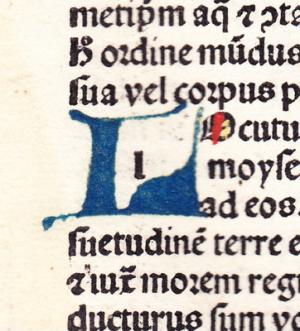 metip̄m aq̄ ⁊ ɔta
h̄ ordine mūdus
sua vel corpus p
L l Ocutu
moyse
ad eos.
suetudinē terre e
⁊ iux̄ morem regi
ducturus sum vo